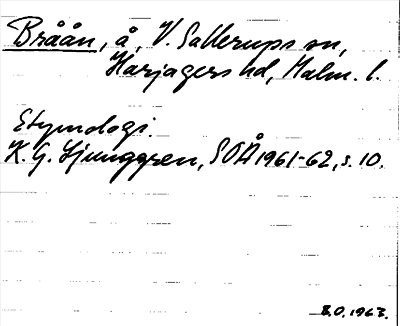 Bråån, å, V. Sallerups sn,
Harjagers hd, Malm. l.
Etymologi.
K. G. Ljunggren, SOÅ 1961-62, s. 10.
B.O. 1963.